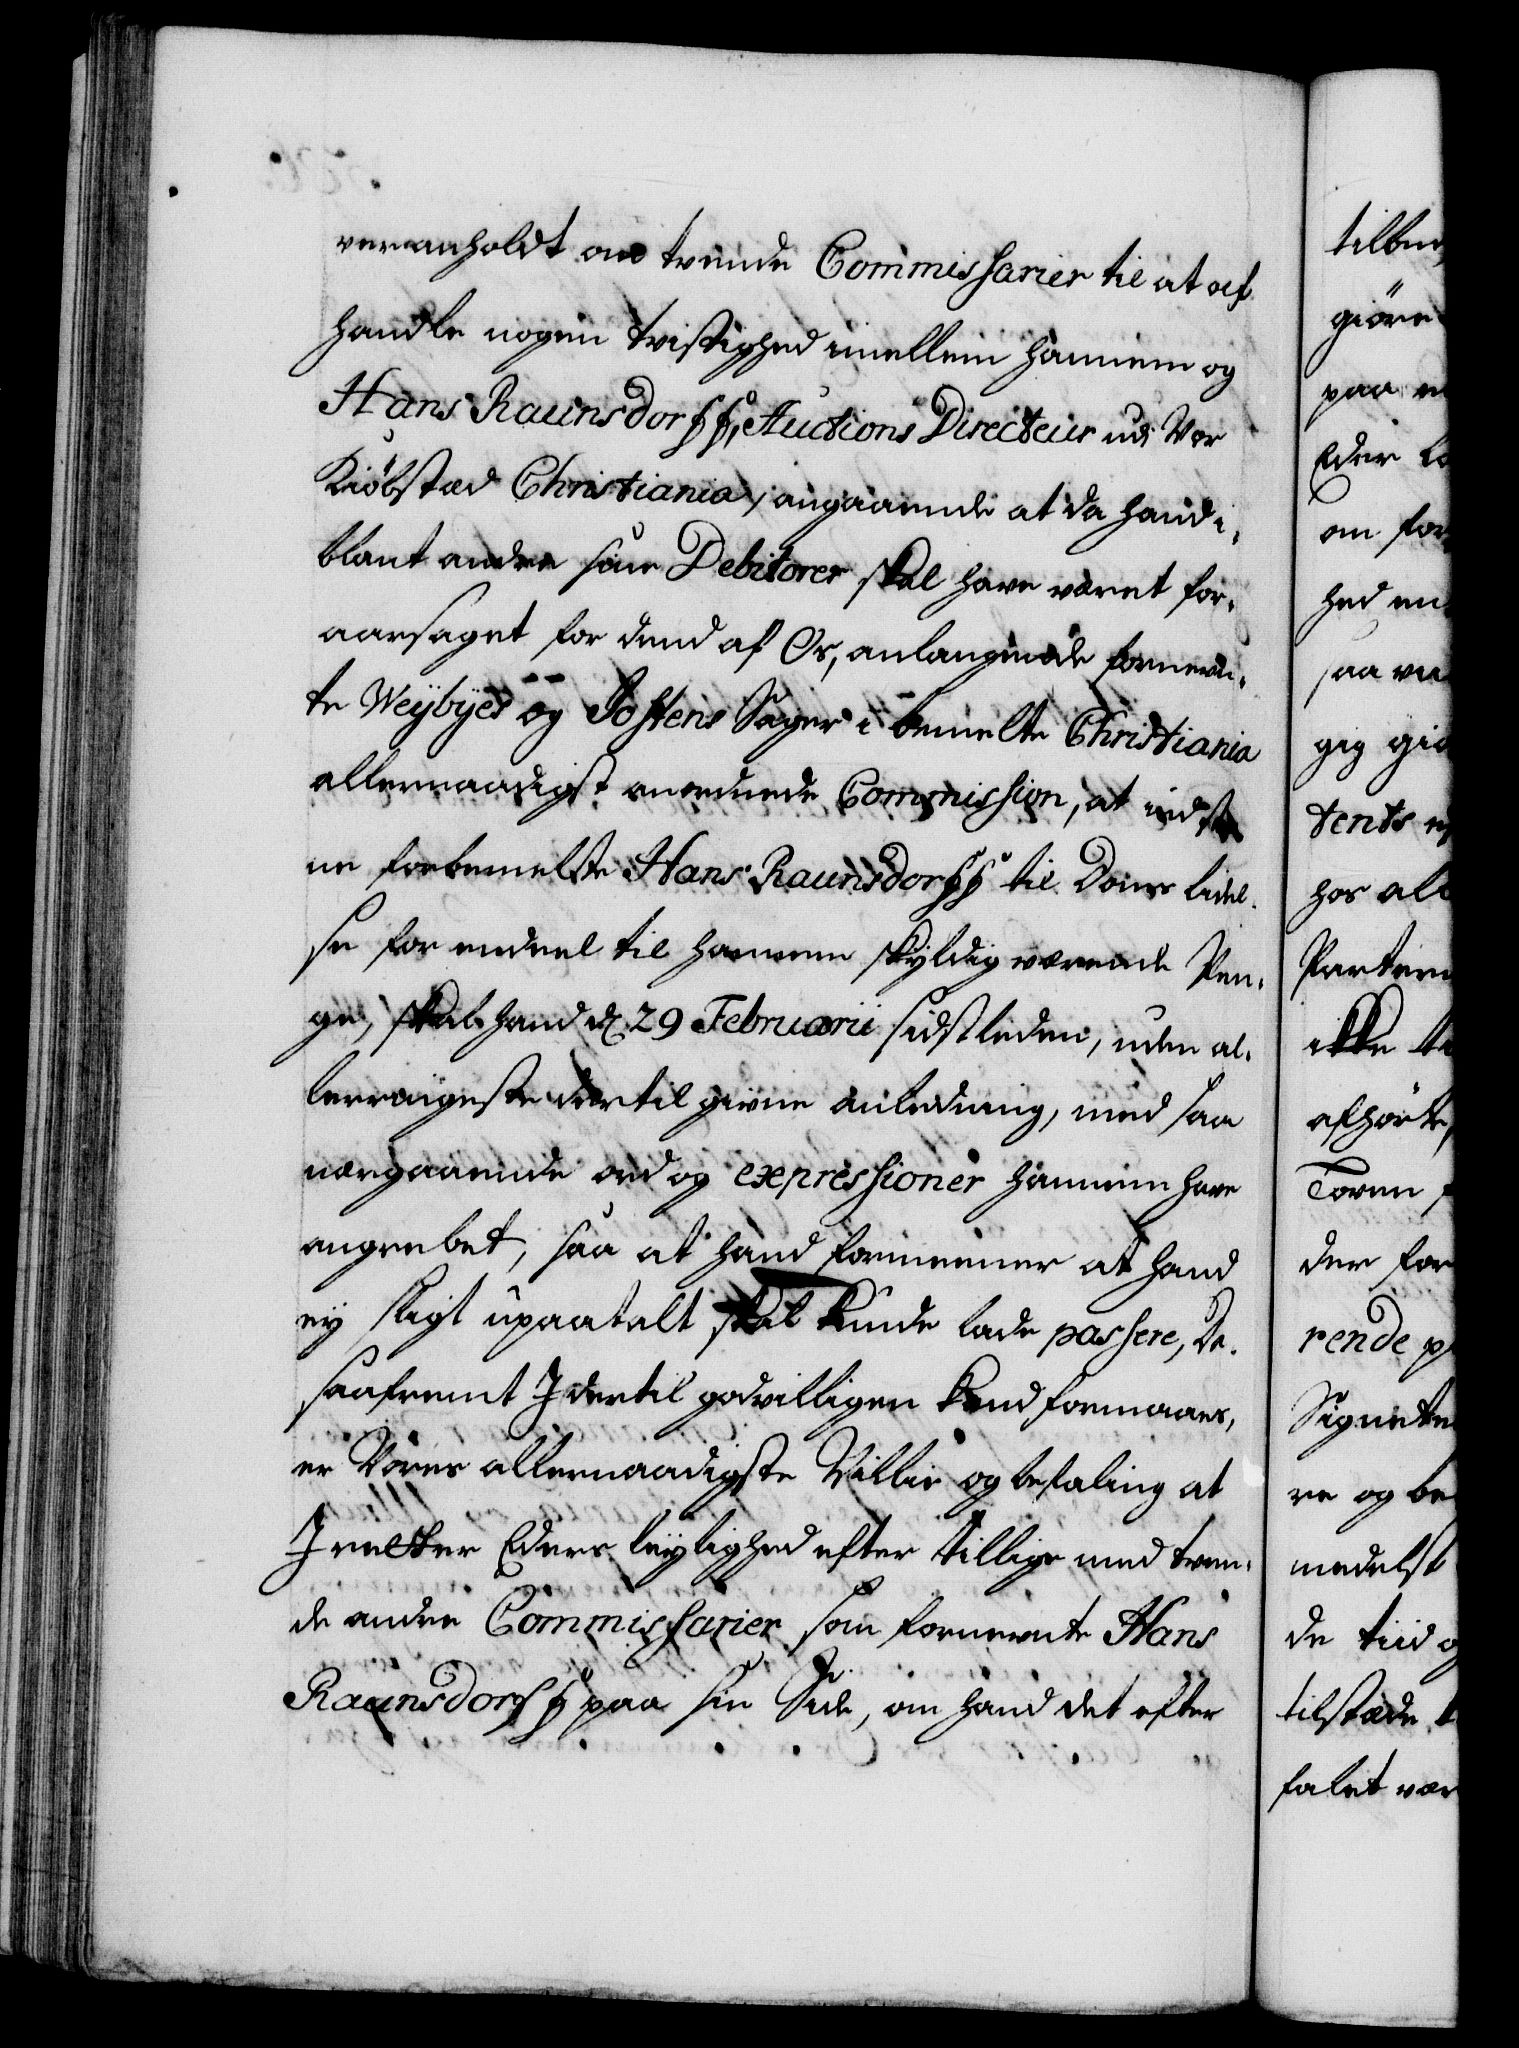 veranholdt om tvende Commissarier til at af
handle nogen tvistighed imellem hannem og
Hans Raunsdorff, Auctions Directeur udi Vor
Kiöbstæd Christiania, angaaende at da hand i,
blant andre sine Debitorer skal have været for,
aarsaget for dend af Os, anlangende fornevn,
te Weÿbÿes og Jostens Sager i bemelte Christiania
allernaadigst anordnede Commission, at indstæ
ne forbemelte Hans Raunsdorff til Doms lidel,
se for endeel til hannem skyldig værende Pen,
ge, skal hand d. 29 Februarii sidstleden, uden al,
lerringeste dertil given anledning, med saa
nærgaaende ord og expressioner hannem have
angrebet, saa at hand formeener at hand
ey sligt upaatalt skal kunde lade passere, Da,
saafremt I dertil godvilligen kand formaaes,
er Vores allernaadigste Villie og befaling at
I retter Eders leylighed efter tillige med tven,
de andre Commissarier som fornevnte Hans
Raunsdorff paa sin Side, om hand det efter
tilbør,
giöre
paa
Eder
om for
hed
saa
gig
tents
hos
Parterne
ikke
afhörte,
Toven
der for
rende
Signete
re og be
medelst
de tiid
tilstæde
falet vær